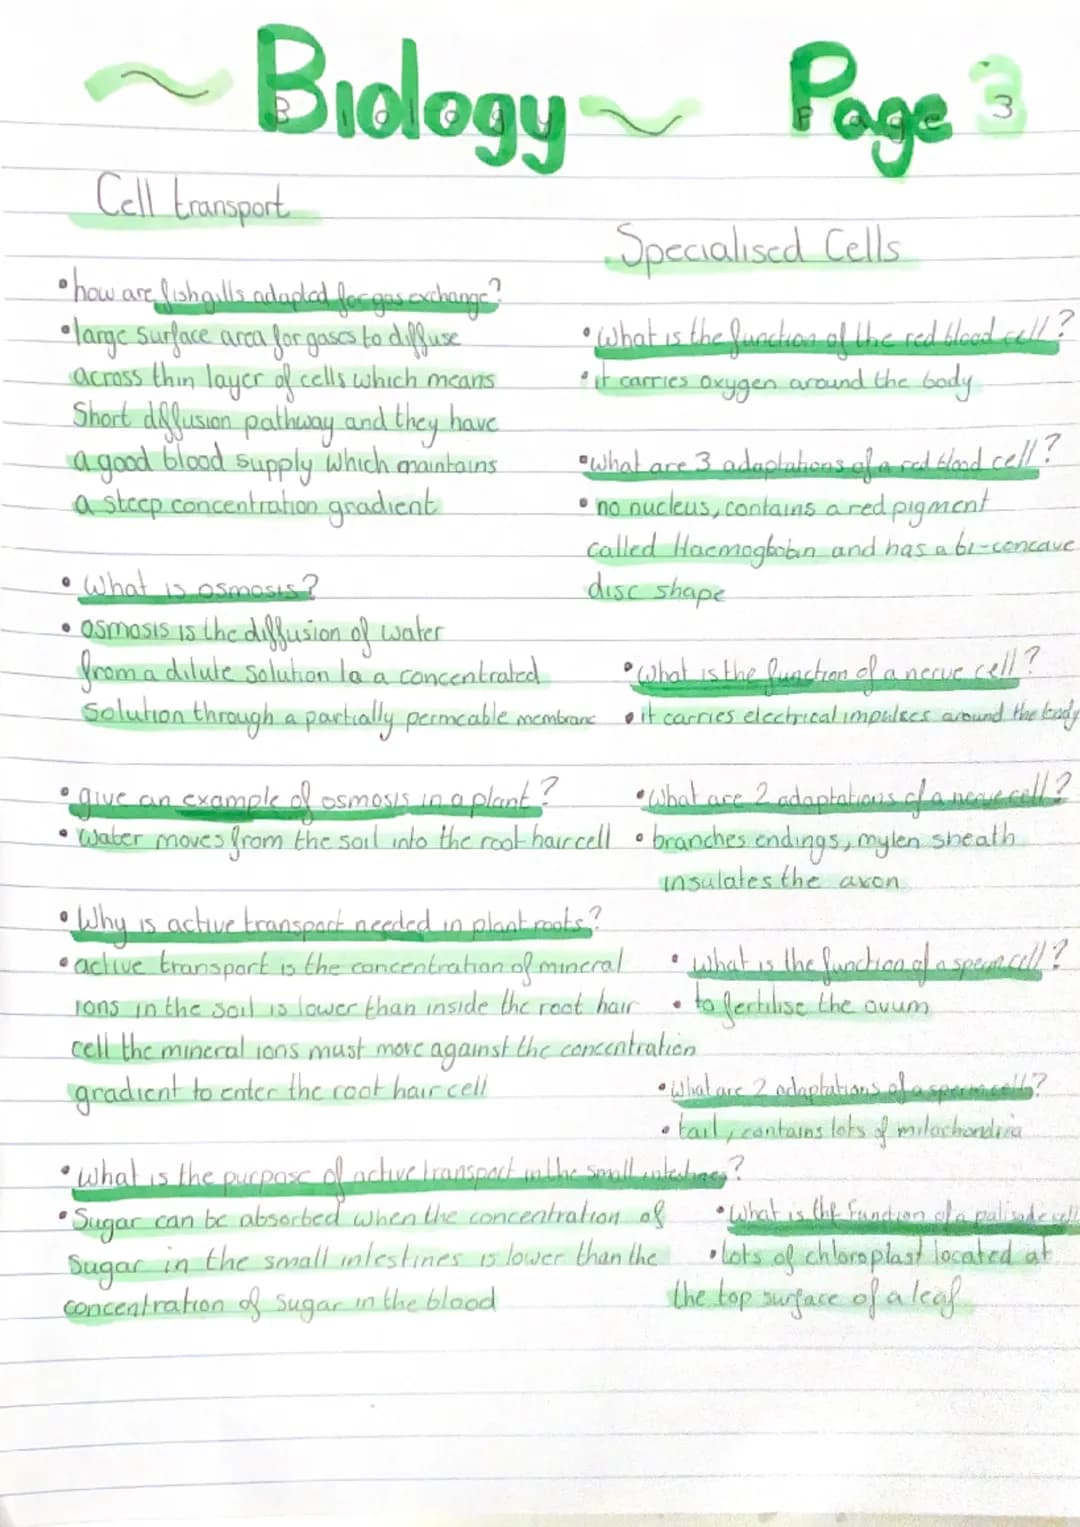 ~ Biology ~ Page 3
Cell transport
• how are fish gills adapted for gas exchange?
• large surface area for gases to diffuse
across thin layer of cells which means
Short diffusion pathway and they have
a good blood supply which maintains
a steep concentration gradient
• What is osmosis?
• osmosis is the diffusion of water
from a dilute solution to a concentrated
Solution through a partially permeable membrane
• give an example of osmosis in a plant?
• Water moves from the soil into the root hair cell
• Why is active transport needed in plant roots?
• active transport is the concentration of mineral
ions in the soil is lower than inside the root hair
cell the mineral ions must move against the concentration
gradient to enter the root hair cell
• What is the purpose of active transport in the small intestines?
• Sugar can be absorbed when the concentration of
Sugar in the small intestines is lower than the
concentration of sugar in the blood
Specialised Cells
• What is the function of the red blood cell?
• it carries oxygen around the body
• what are 3 adaptations of a red blood cell?
• no nucleus, contains a red pigment
called Haemogbobin and has a bi-concave
disc shape
• What is the function of a nerve cell?
• it carries electrical impulses around the body
• What are 2 adaptations of a nerve cell?
• branches endings, mylen sheath
insulates the axon
• What is the function of a sperm cell?
• to fertilise the ovum
• What are 2 adaptations of a sperm cell?
• tail, contains lots of mitochondria
• What is the function of a palisade cell
• Lots of chloroplast located at
the top surface of a leaf